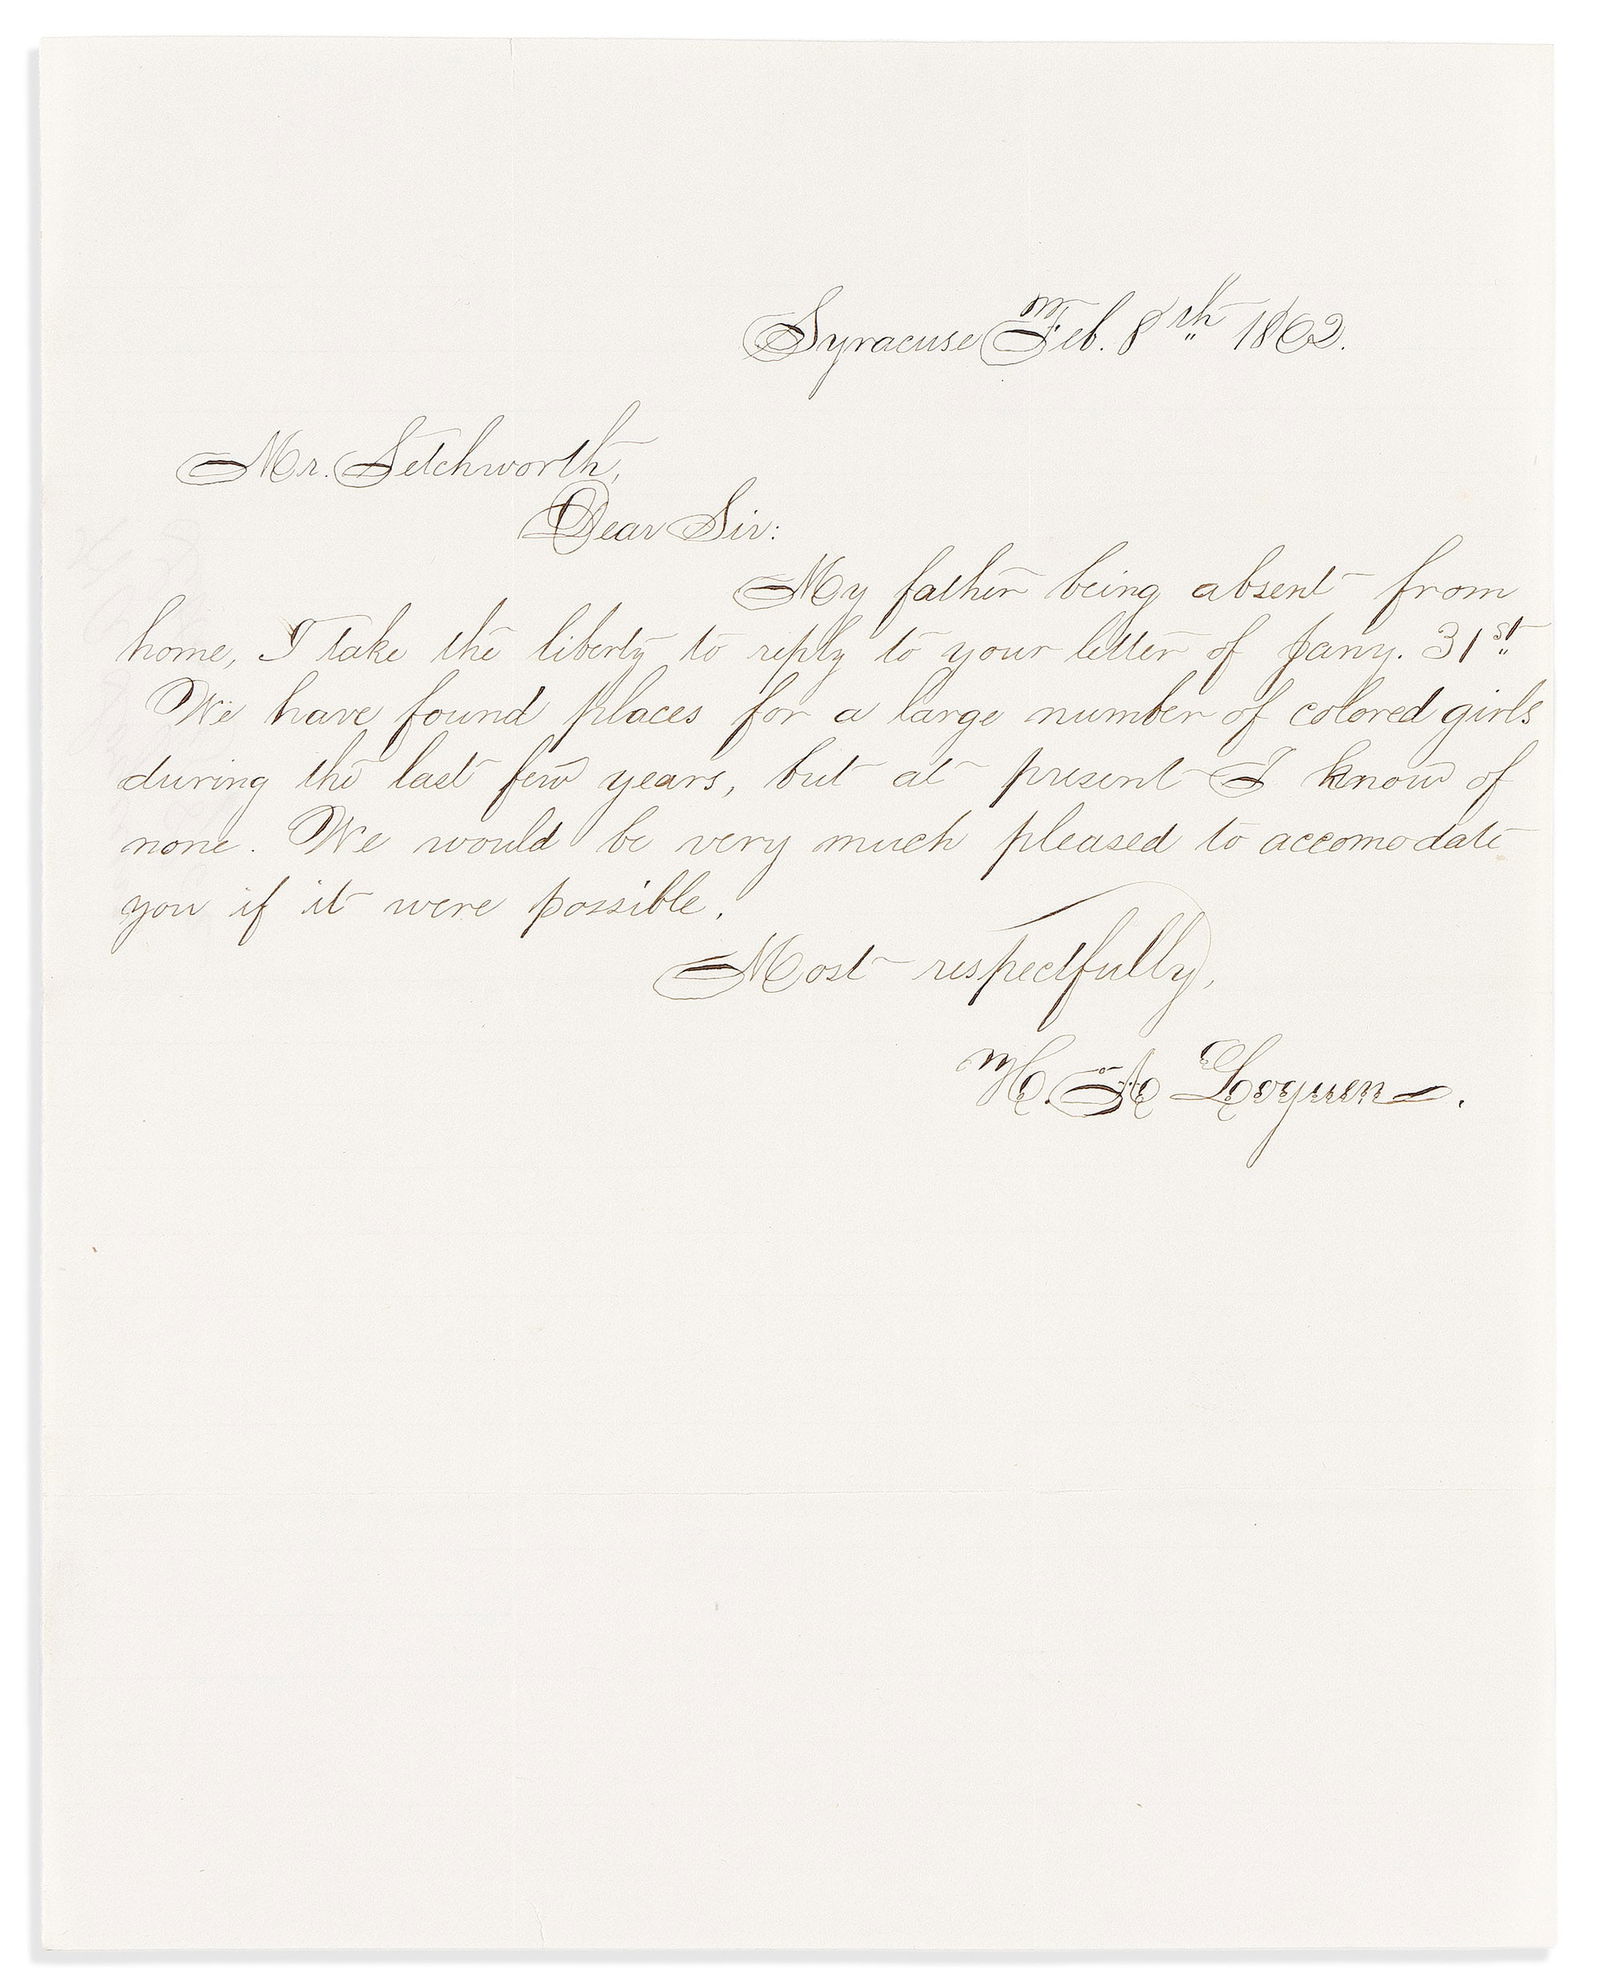 Syracuse Feb. 8th 1862.
Mr. Letchworth,
Dear Sir:
My father being absent from
home, I take the liberty to reply to your letter of Jany. 31st
We have found places for a large number of colored girls
during the last few years, but at present I know of
none. We would be very much pleased to accomodate
you if it were possible.
Most respectfully,
H. A. Loguen.